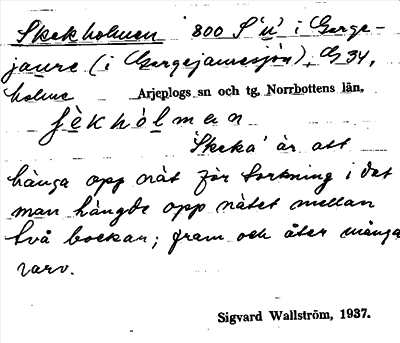 Skekholmen 800 S 'u' i Gerge-
jaure (i Gergejauresjön), G 34,
holme Arjeplogs sn och tg, Norrbottens län,
ʃèkhòlman
'Skeka' är att
hänga opp nät för torkning i det
man hängde opp nätet mellan
två bockar; fram och åter många
varv.
Sigvard Wallström, 1937.